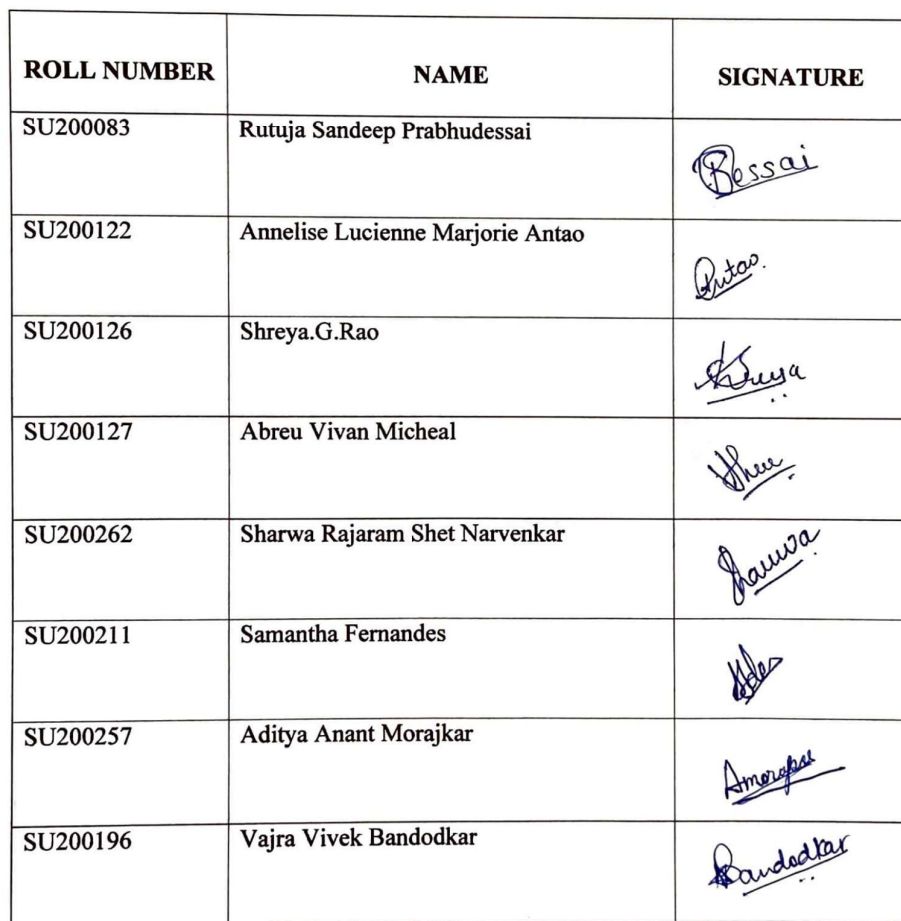 ROLL NUMBER NAME SIGNATURE
SU200083 Rutuja Sandeep Prabhudessai
Dessai
SU200122 Annelise Lucienne Marjorie Antao
Antao.
SU200126 Shreya.G.Rao
Shreya
SU200127 Abreu Vivan Micheal
SU200262 Sharwa Rajaram Shet Narvenkar
Sharwa
SU200211 Samantha Fernandes
SU200257 Aditya Anant Morajkar
SU200196 Vajra Vivek Bandodkar
Bandodkar